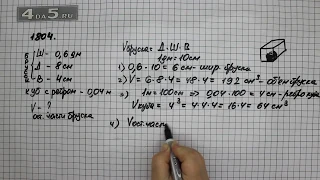 4DA5.RU
1804.
Ш - 0,6 дм
Д - 8 см
В - 4 см
куб с ребром - 0,04 м
V - ?
ост. части бруска
Vбруска = Д · Ш · В
1дм = 10см
1) 0,6 · 10 = 6 см - шир. бруска
2) V = 6 · 8 · 4 = 48 · 4 = 192 см³ - объем бруска
3) 1м = 100см => 0,04 · 100 = 4 см - ребро куба
Vкуба = 4³ = 4 · 4 · 4 = 16 · 4 = 64 см³
4) Vост. части